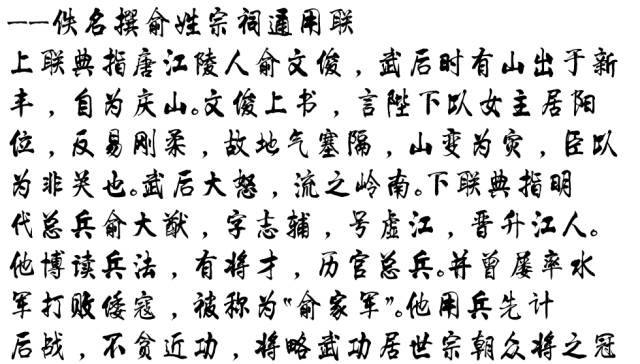 ——佚名撰俞姓宗祠通用联
上联典指唐江陵人俞文俊，武后时有山出于新
丰，自为庆山。文俊上书，言陛下以女主居阳
位，反易刚柔，故地气塞隔，山变为灾，臣以
为非关也。武后大怒，流之岭南。下联典指明
代总兵俞大猷，字志辅，号虚江，晋升江人。
他博读兵法，有将才，历官总兵。并曾屡率水
军打败倭寇，被称为“俞家军”。他用兵先计
后战，不贪近功，将略武功居世宗朝众将之冠